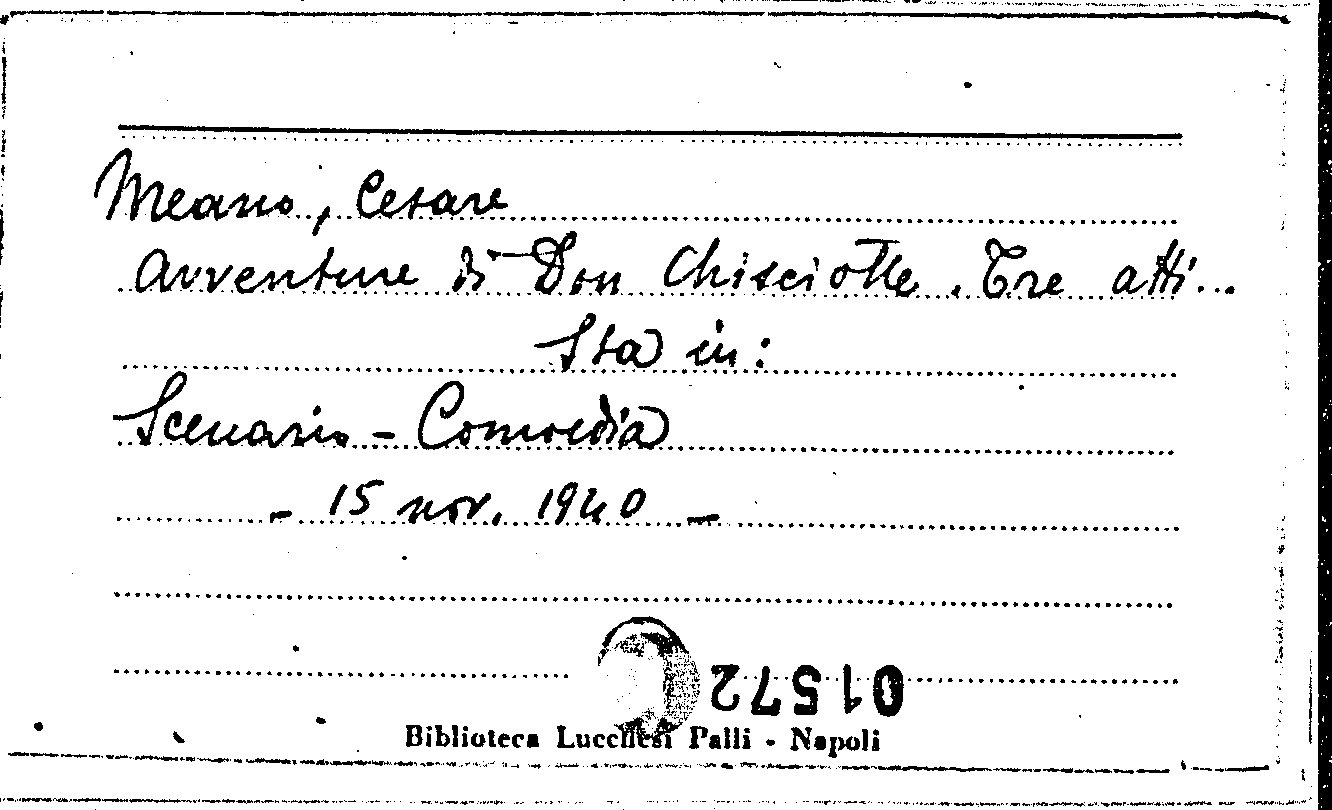 Meano, Cesare
Avventure di Don Chisciotte. Tre atti...
Sta in:
Scenario - Comoedia
- 15 nov. 1940 -
01572
Biblioteca Lucchesi Palli - Napoli